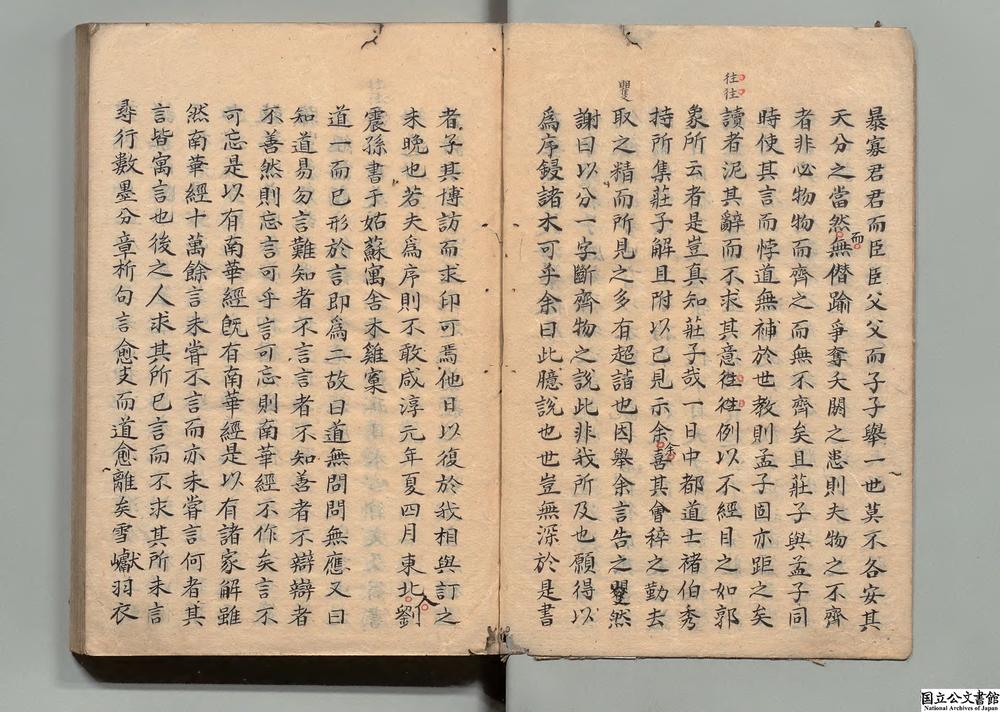 暴寡君君而臣臣父父而子子舉一世莫不各安其
天分之當然無僭踰爭奪夭閼之患則夫物之不齊
而
者非必物物而齊之而無不齊矣且莊子與孟子同
時使其言而悖道無補於世教則孟子固亦距之矣
往往
讀者泥其辭而不求其意徃徃例以不經目之如郭
象所云者是豈真知莊子哉一日中都道士褚伯秀
持所集莊子解且附以己見示余喜其會稡之勤去
余
矍
取之精而所見之多有超詣也因舉余言告之矍然
謝曰以分一字斷齊物之說此非我所及也願得以
爲序鋟諸木可乎余曰此臆說也世豈無深於是書
者子其博訪而求印可焉他日以復於我相與訂之
未晚也若夫爲序則不敢咸淳元年夏四月東北劉
人
震孫書于姑蘇寓舍木雞窠
道一而已形於言即爲二故曰道無問問無應又曰
知道易勿言難知者不言言者不知善者不辯辯者
不善然則忘言可乎言可忘則南華經不作矣言不
可忘是以有南華經既有南華經是以有諸家解雖
然南華經十萬餘言未嘗不言而亦未嘗言何者其
言皆寓言也後之人求其所已言而不求其所未言
尋行數墨分章析句言愈支而道愈離矣雪巘羽衣
国立公文書館
National Archives of Japan